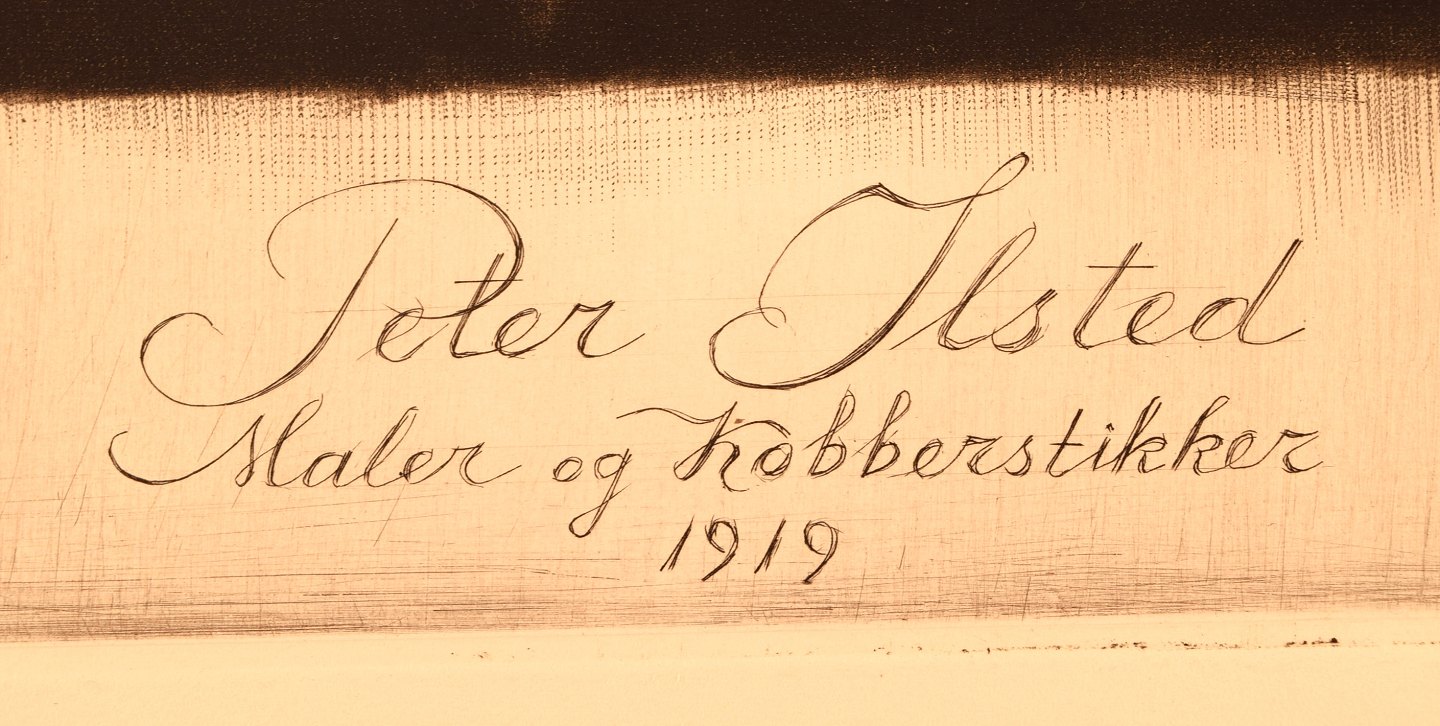 Peter Ilsted
Maler og Kobberstikker
1919